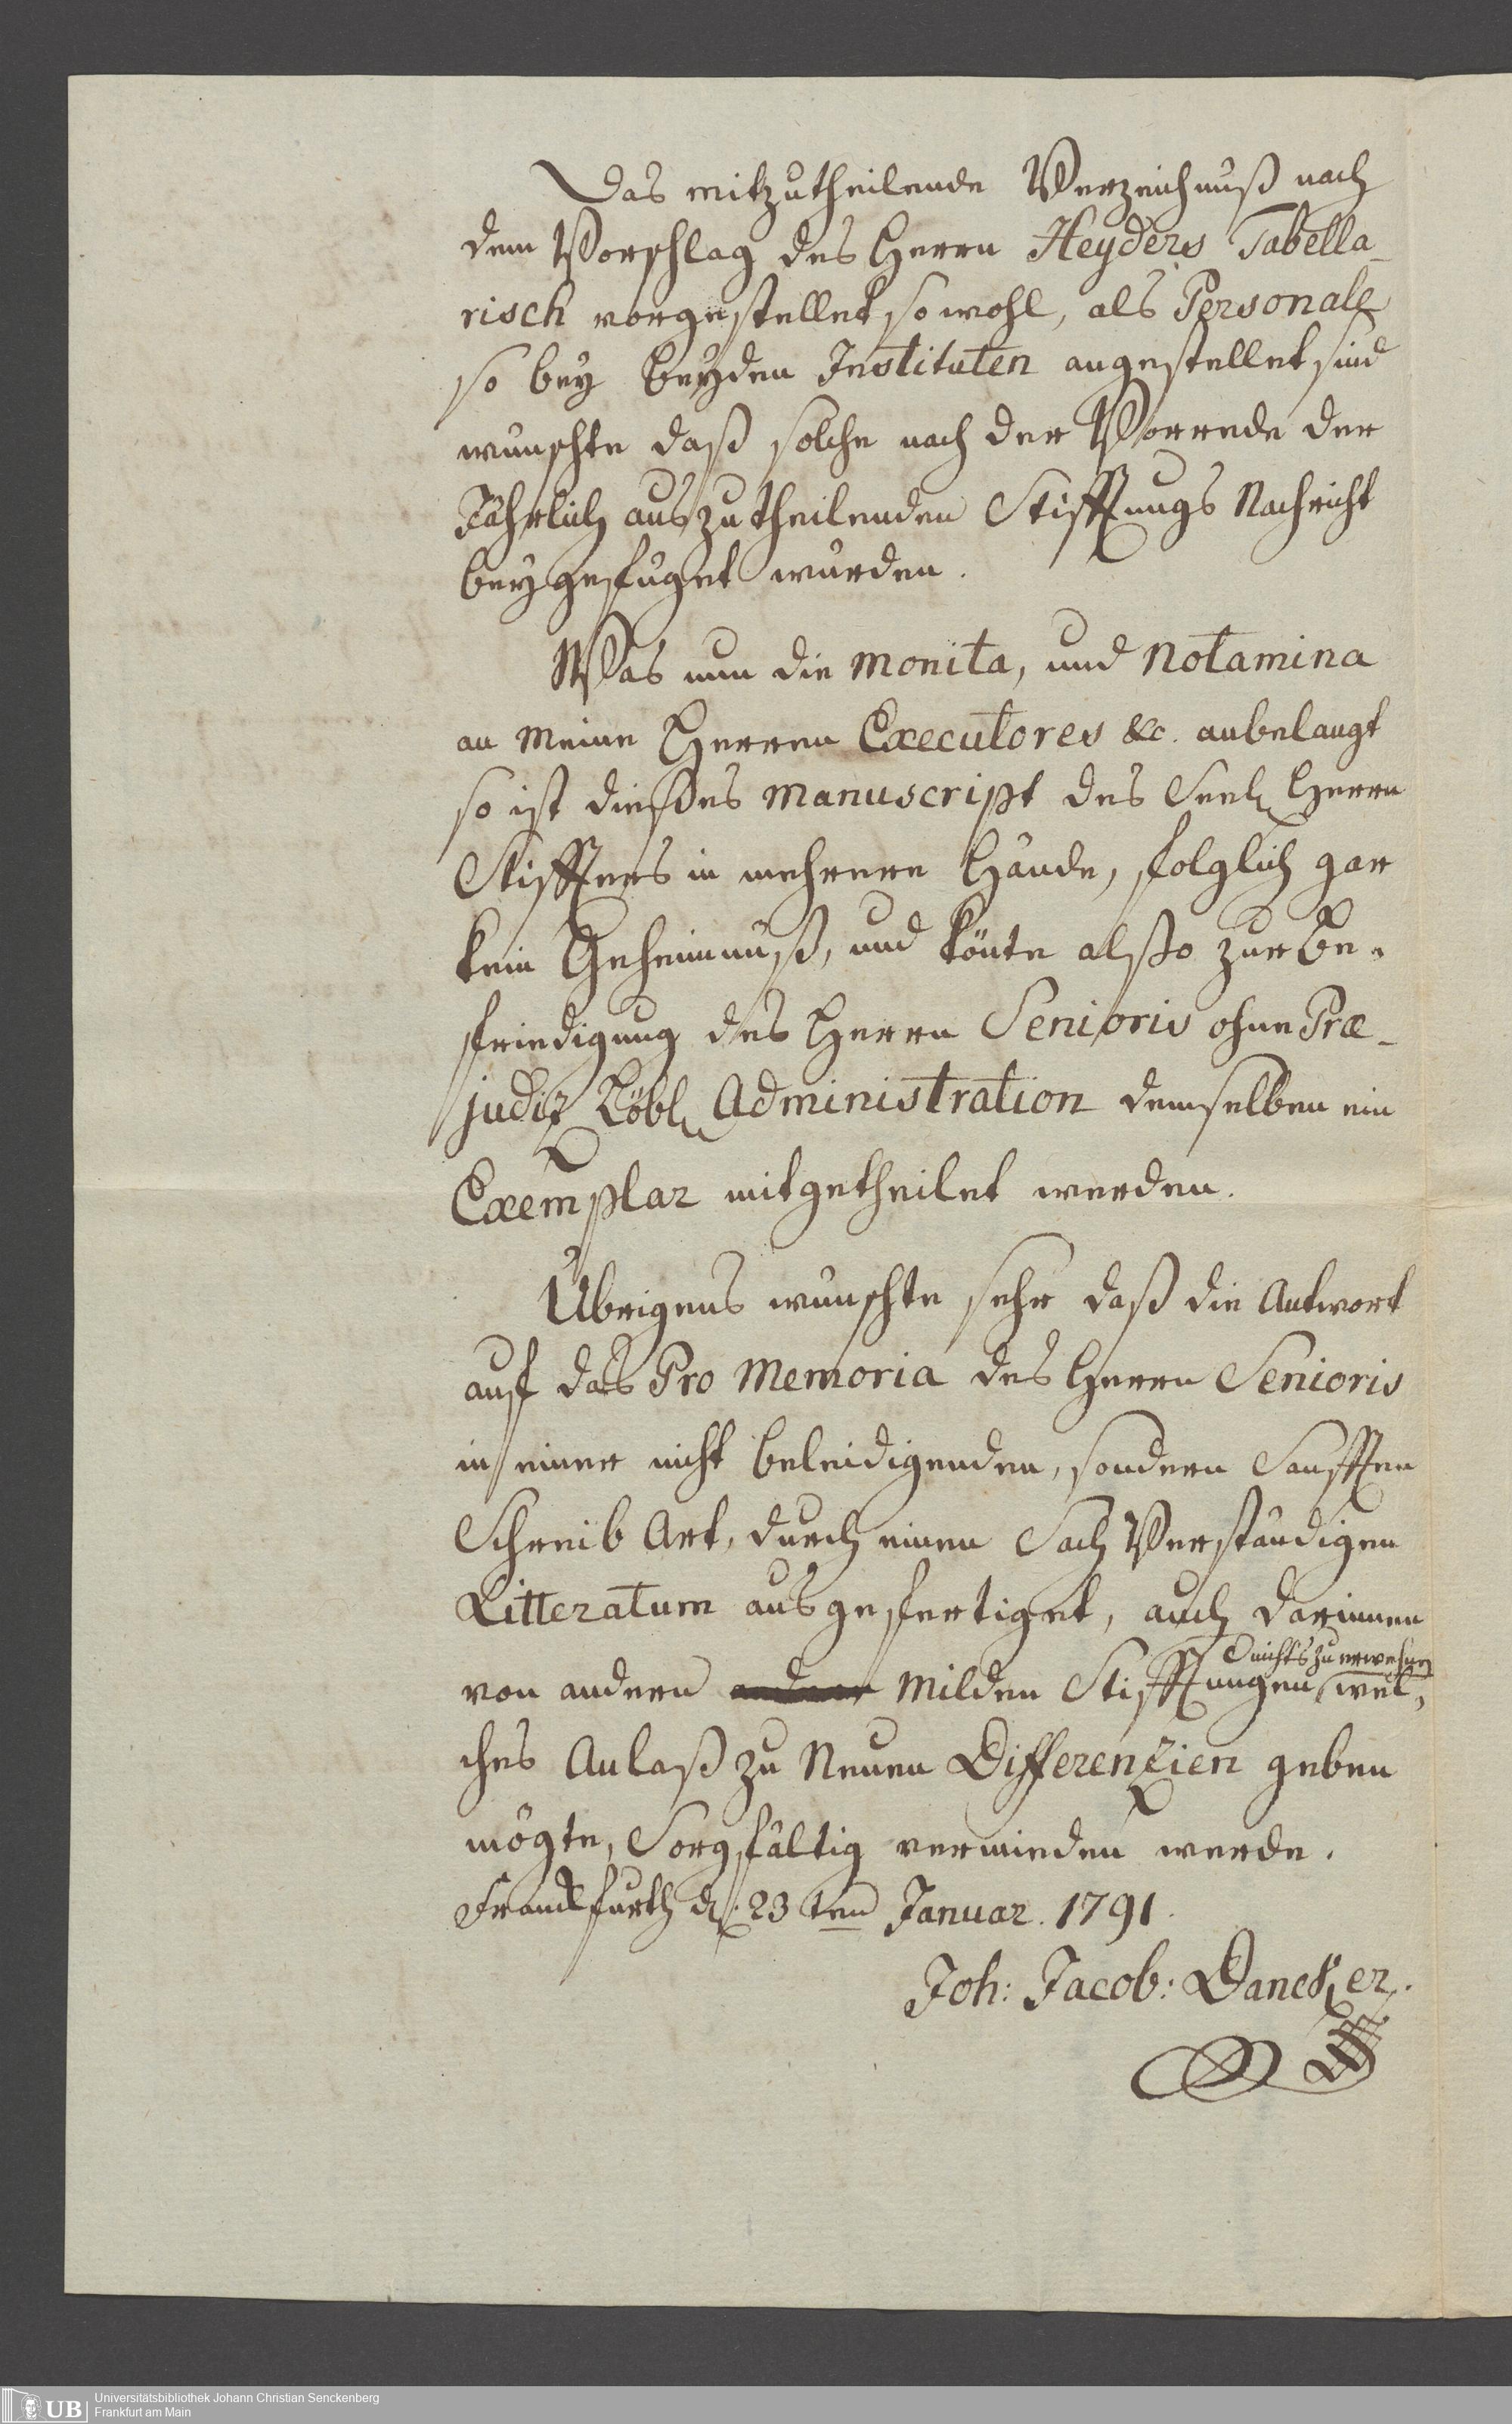 Das mitzutheilende Verzeichnuß nach
dem Vorschlag des Herrn Heyders Tabella-
risch vorgestellet so wohl, als Personale
so bey beyden Instituten angestellet sind
wunschte daß solche nach der Vorrede der
Jährlich auszutheilenden Stifftungs Nachricht
beygefuget wurden.
Was nun die Monita, und Notamina
an Meine Herren Executores &c. anbelangt
so ist dießes Manuscript des Seel Herrn
Stiffters in mehrere Hände, folglich gar
kein Geheimnuß, und könte alßo zur Be-
friedigung des Herrn Senioris ohne Præ-
judiz Löbl Administration demselben ein
Exemplar mitgetheilet werden.
Übrigens wunschte sehr daß die Antwort
auf das Pro Memoria des Herrn Senioris
in einer nicht beleidigenden, sondern Sanfften
Schreib Art, durch einen Sach Verständigen
Litteratum ausgefertiget, auch darinnen
nichts zu erwehnen
von andern Milden Stifftungen wel-
ches Anlaß zu Neuen Differenzien geben
mögte, Sorgfältig vermieden werde.
Franckfurth d. 23ten Januar. 1791.
Joh: Jacob: Dancker.
UB
Universitätsbibliothek Johann Christian Senckenberg
Frankfurt am Main